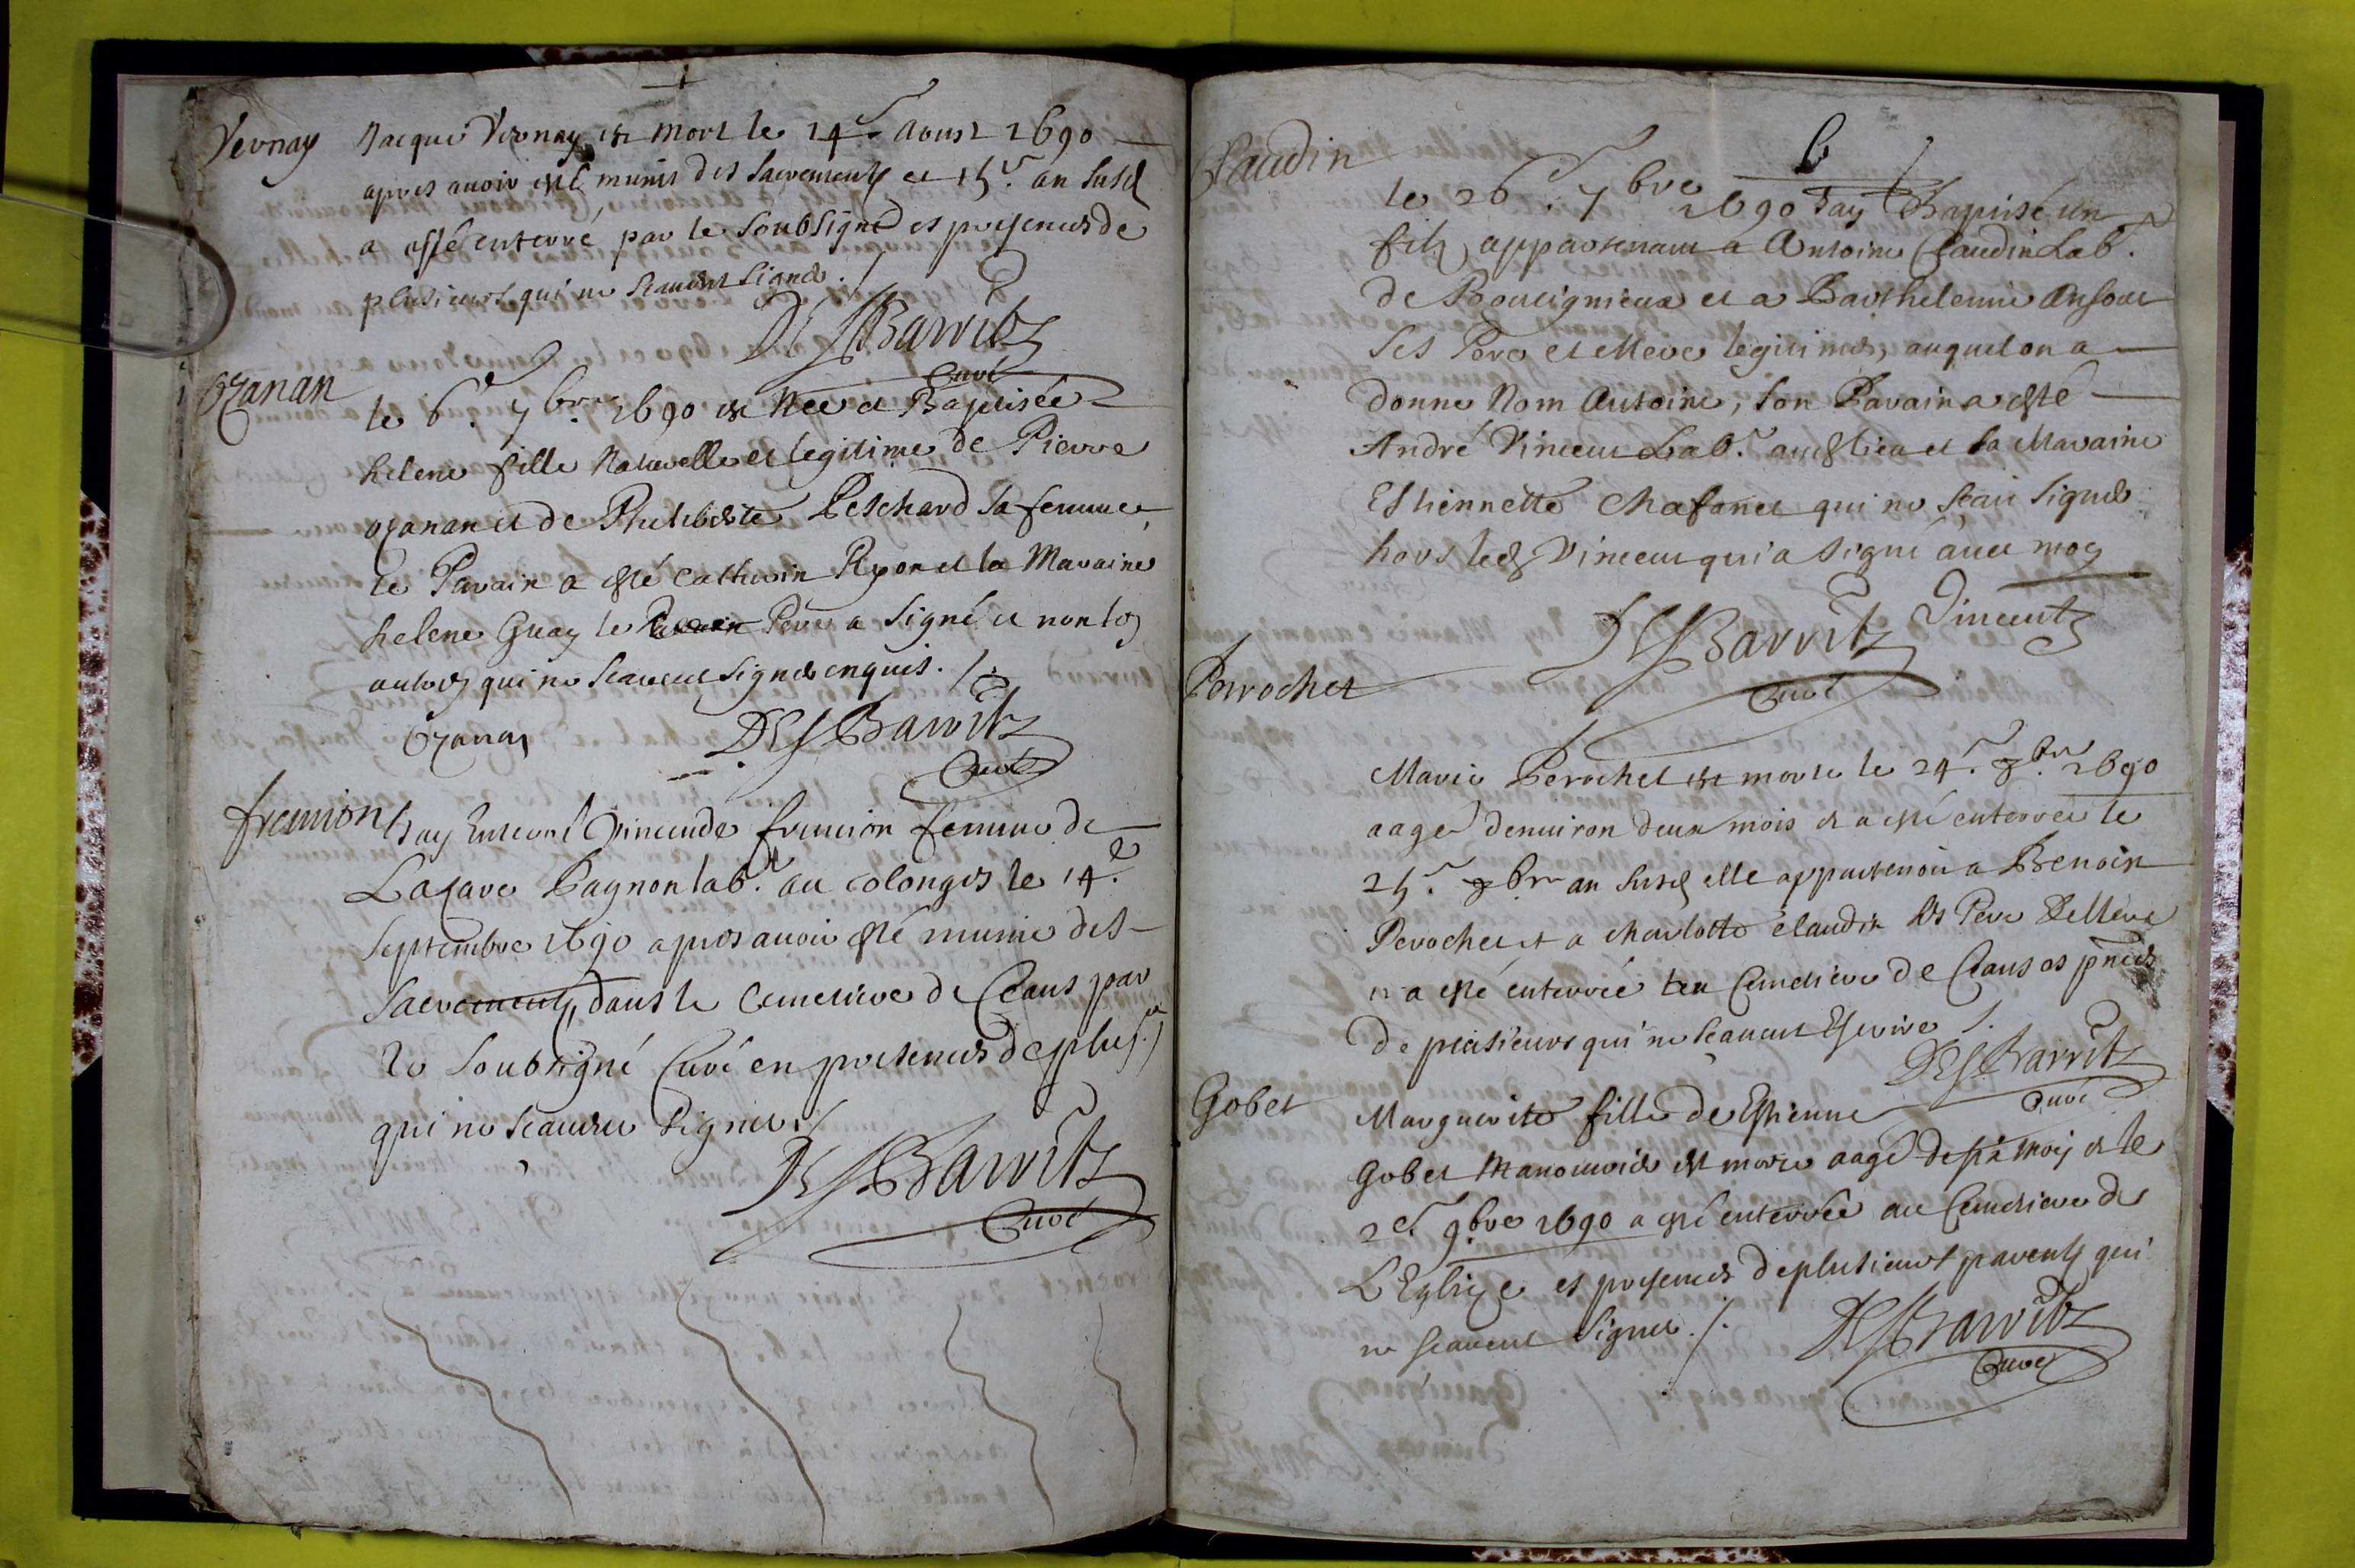 Vernay
Jacque Vernay est mort le 14.e Aoust 1690
apres avoir esté munis des Sacrements et 15.e an susd
a esté enterré par le soubsigné es presences de
plusieurs qui ne scavent signer ./.
DesBarritz
Curé
Ozanan
le 6.e 7.bre 1690 est Nee et Baptisée
helene fille Naturelle et legitime de Pierre
ozanan et de Philiberte Peschard sa femme,
le Parain a esté Catherin Ryon et la Maraine
helene Guay le Parain Pere a signé et non les
autres qui ne scavent signer enquis. /.
Ozanan
DesBarritz
Curé
fremion
Jay Enterré Vincende fremion femme de
Lazare Pagnon lab.r au colonges le 14.e
Septembre 1690 apres avoir esté munie des
Sacrements, dans le Cimetiere de Ceans par
le Soubsigné Curé en presences de plus.rs
qui ne scavent signer ./
DesBarritz
Curé
Claudin
6
le 26.e 7bre 1690 Jay Baptisé un
filz appartenant a Antoine Claudin Lab.r
de et a Barthelemie
ses Pere et Mere legitimes, auquel on a
donne Nom Antoine, son Parain a esté
André Vincent Lab.r aud lieu et sa Maraine
Estiennette Chafanet qui ne scait signer
hors led Vincent qui a signé avec moy
DesBarritz Vincent
Curé
Perrochet
Marie Perochet est morte le 24.e 8.bre 1690
aagé denviron deux mois et a esté enterrée le
25.e 8bre an susd elle appartenoit a Benoist
Perochet et a charlotte claudin ses Pere & Mere
et a esté enterrée au Cimetiere de Ceans es pnces
de plusieurs qui ne scavent Escrire ./.
DesBarritz
Curé
Gobet
Marguerite fille de Estienne
Gobet Manouvrier est morte aagé de six mois et le
2.e 9.bre 1690 a esté enterrée au Cimetiere de
LEglize es presences de plusieurs parents qui
ne scavent signer ./.
DesBarritz
Curé